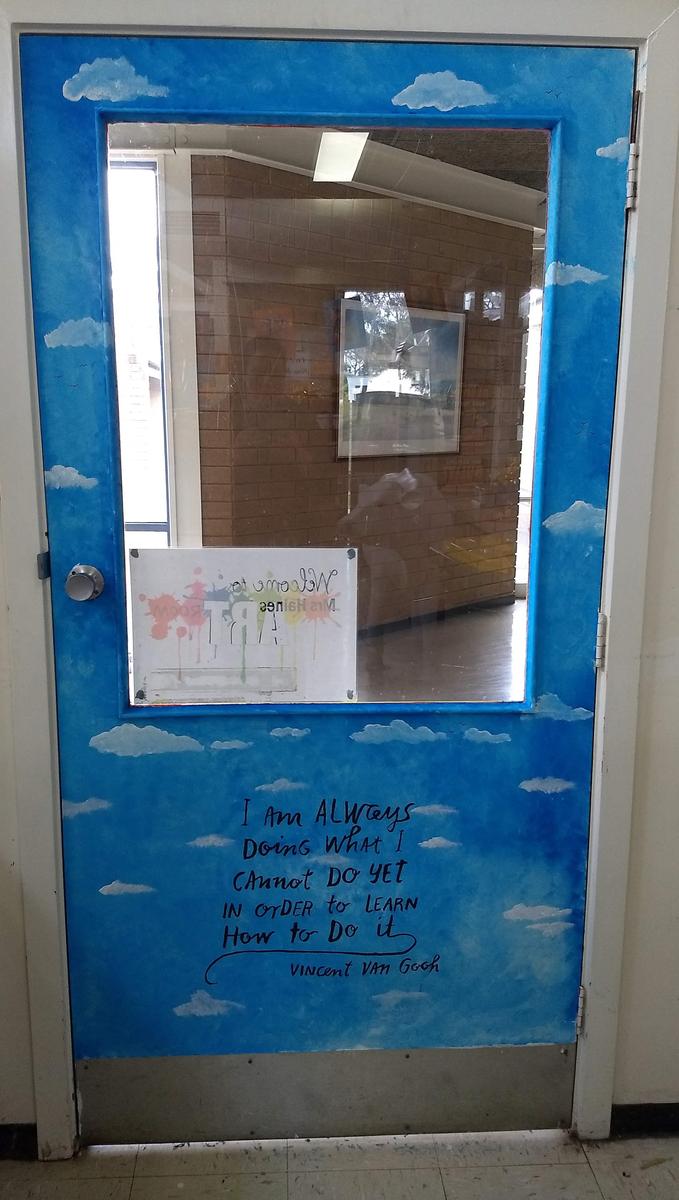 Welcome to
Mrs Haines
ART ROOM
I Am ALWAYS
DOING WHAT I
CANNOT DO YET
IN ORDER to LEARN
How to Do it
VINCENT VAN GOGH